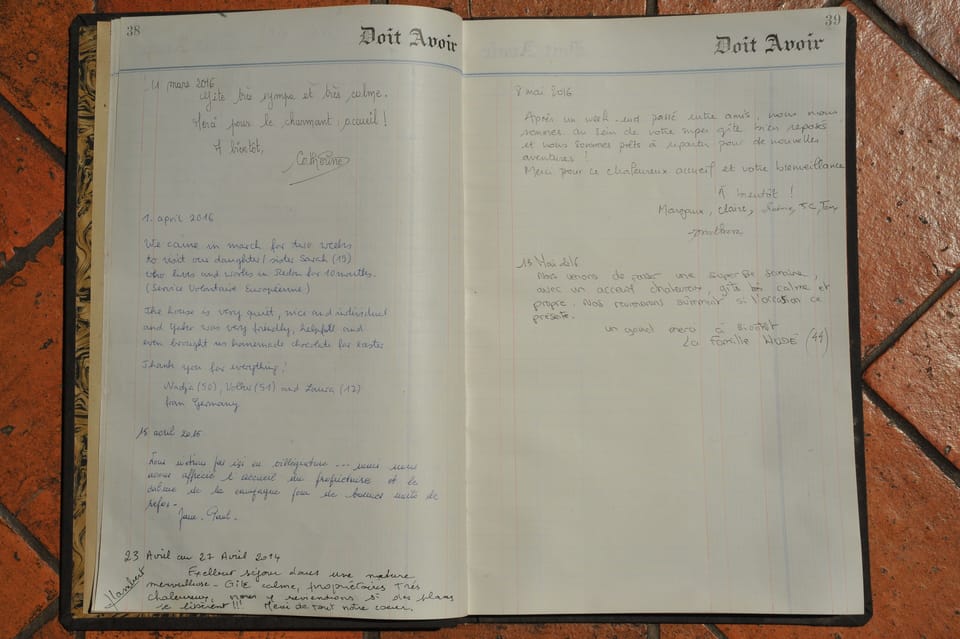 38
Doit Avoir
11 mars 2016
Gîte très sympa et très calme.
Merci pour le charmant accueil !
A bientôt,
Catherine
1. april 2016
We came in march for two weeks
to visit our daughter / sister Sarah (19)
who lives and works in Redon for 10 months.
(Service Volontaire Européenne)
The house is very quiet, nice and individual
and was very friendly, helpfull and
even brought us homemade chocolate for easter
Thank you for everything!
Nadja (50), Volker (51) and Laura (12)
from Germany
15 avril 2016
par ici en villégiature ... nous
avons apprécié l'accueil du propriétaire et le
calme de la campagne pour de bonnes nuits de
repos.
23 Avril au 27 Avril 2014
Excellent séjour dans une nature
merveilleuse - Gîte calme, propriétaires très
chaleureux, nous y reviendrons si des plans
se libèrent !!! Merci de tout notre coeur.
39
Doit Avoir
8 mai 2016
Après un week-end passé entre amis, nous nous
sommes au sein de votre super gîte bien reposés
et nous sommes prêts à repartir pour de nouvelles
aventures !
Merci pour ce chaleureux accueil et votre bienveillance
À bientôt !
Margaux, Claire,
Jonathan
15 Mai 2016
Nous venons de passer une superbe semaine,
avec un accueil chaleureux, gîte très calme et
propre. Nous reviendrons sûrement si l'occasion ce
présente.
un grand merci à Bientôt
La famille (44)